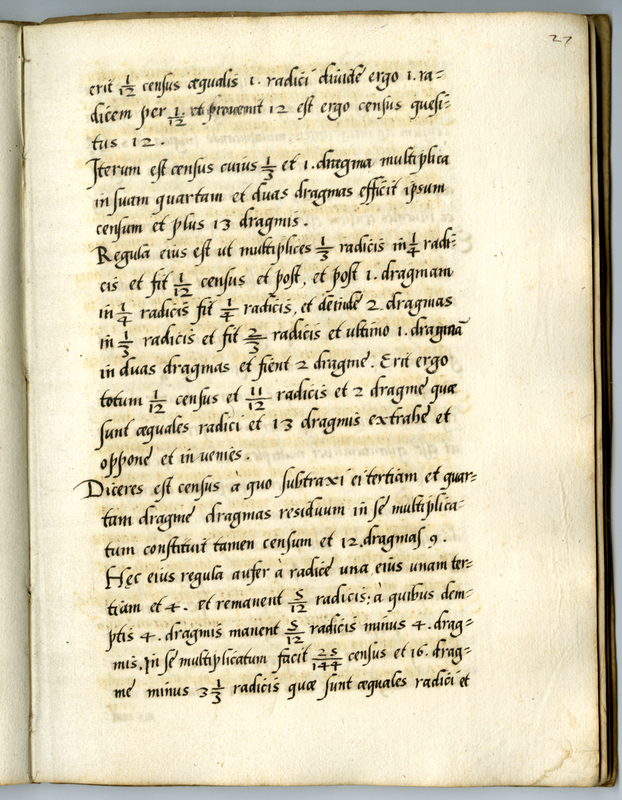 27
erit 1/12 census æqualis 1. radici diuide ergo 1. ra=
dicem per 1/12 et prouenit 12 est ergo census quesi-
tus 12.
Iterum est census cuius 1/3 et 1. dragma multiplica
in suam quartam et duas dragmas efficit ipsum
censum et plus 13 dragmis.
Regula eius est ut multiplices 1/3 radicis in 1/4 radi-
cis et fit 1/12 census et post, et post 1. dragmam
in 1/4 radicis fit 1/4 radicis, et deinde 2 dragmas
in 1/3 radicis et fit 2/3 radicis et ultimo 1. dragmā
in duas dragmas et fient 2 dragme. Erit ergo
totum 1/12 census et 11/12 radicis et 2 dragme quæ
sunt æquales radici et 13 dragmis extrahe et
oppone et inuenies.
Diceres est census à quo subtraxi ei tertiam et quar=
tam dragme dragmas residuum in se multiplica-
tum constituit tamen censum et 12. dragmas 9.
Hęc eius regula aufer à radice una eius unam ter=
tiam et 4. et remanent 5/12 radicis; à quibus dem=
ptis 4. dragmis manent 5/12 radicis minus 4. drag=
mis. In se multiplicatum facit 25/144 census et 16. drag=
me minus 3 1/3 radicis quæ sunt æquales radici et